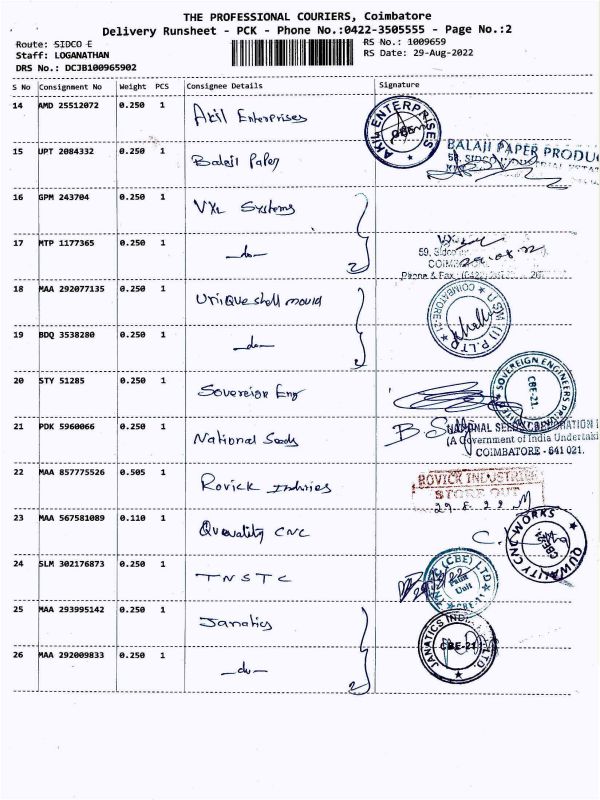 THE PROFESSIONAL COURIERS, Coimbatore
Delivery Runsheet - PCK - Phone No.:0422-3505555 - Page No.:2
Route: SIDCO E
RS No.: 1009659
Staff: LOGANATHAN
RS Date: 29-Aug-2022
DRS No.: DCJB100965902
S No Consignment No Weight PCS Consignee Details Signature
14 AMD 25512072 0.250 1 Akil Enterprises
AKIL ENTERPRISES CBE
15 UPT 2084332 0.250 1 Balaji Paper
BALAJI PAPER PRODU
58, SIDCO INDUSTRIAL ESTAT
16 GPM 243704 0.250 1 VXL Systems
17 MTP 1177365 0.250 1 —do—
59, Sidco
COIM
29.08.22
Phone & Fax : (0422)
18 MAA 292077135 0.250 1 Unique shell mould
COIMBATORE-21 (I) P.LTD
19 BDQ 3538280 0.250 1 —do—
20 STY 51285 0.250 1 Sovereign Eng
SOVEREIGN ENGINEERS PRIVATE CBE-21.
21 PDK 5960066 0.250 1 National Seeds
NATIONAL SEEDS CORPORATION
(A Government of India Undertaki
COIMBATORE - 641 021.
22 MAA 857775526 0.505 1 Rovick Indutries
ROVICK INDUSTRIES
STORE OUT
29.8.22
23 MAA 567581089 0.110 1 Quwality CNC
QUWALITY CNC WORKS
24 SLM 302176873 0.250 1 TNSTC
(CBE) LTD Unit CBE-11
25 MAA 293995142 0.250 1 Janatics
JANATICS INDIA LTD. CBE-21
26 MAA 292009833 0.250 1 —do—